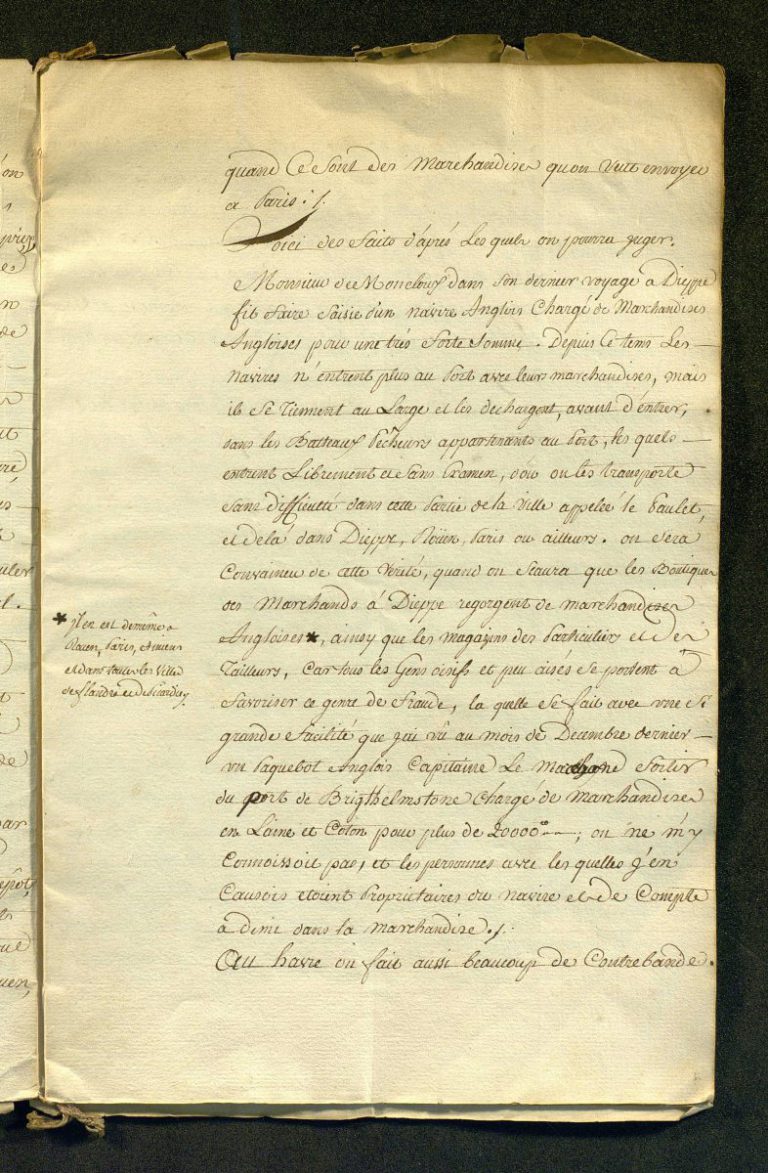 quand Ce sont des Marchandises qu'on veut envoyer
a Paris ./.
Voici des faits d'aprés Les quels on pourra juger.
Monsieur de Montcloux dans son dernier voyage a Dieppe
fit faire saisie d'un navire Anglois Chargé de Marchandises
Angloises pour une trés forte somme. Depuis Ce tems Les
navires n'entrent plus au Port avec leurs marchandises, mais
ils se Tiennent au Large et les dechargent, avant d'entrer,
dans les Batteaux Pecheurs appartenants au Port, les quels
entrent Librement et sans Examen, d'où on les transporte
sans difficulté dans cette Partie de la Ville appelée le Paulet,
et delà dans Dieppe, Roüen, Paris ou ailleurs. on sera
Convaincu de cette Verité, quand on scaura que les Boutiques
des Marchands à Dieppe regorgent de marchandises
Angloises*, ainsy que les magazins des Particuliers et des
Tailleurs, Car tous les Gens oisifs et peu aisés se portent à
favoriser ce genre de fraude, la quelle se fait avec une si
grande facilité que j'ai vû au mois de Decembre dernier
un Paquebot Anglois Capitaine Le Marchand sortir
du port de Brigthelmstone Chargé de marchandises
en Laine et Coton pour plus de 20000 ; on ne m'y
Connoissoit pas, et les personnes avec les quelles j'en
Causois etoient Proprietaires du navire et de Compte
à demi dans la marchandise ./.
Au havre on fait aussi beaucoup de Contrebande.
* Il en est de même a
Rouen, Paris, Amiens
et dans toutes les Villes
de flandre et de Picardie